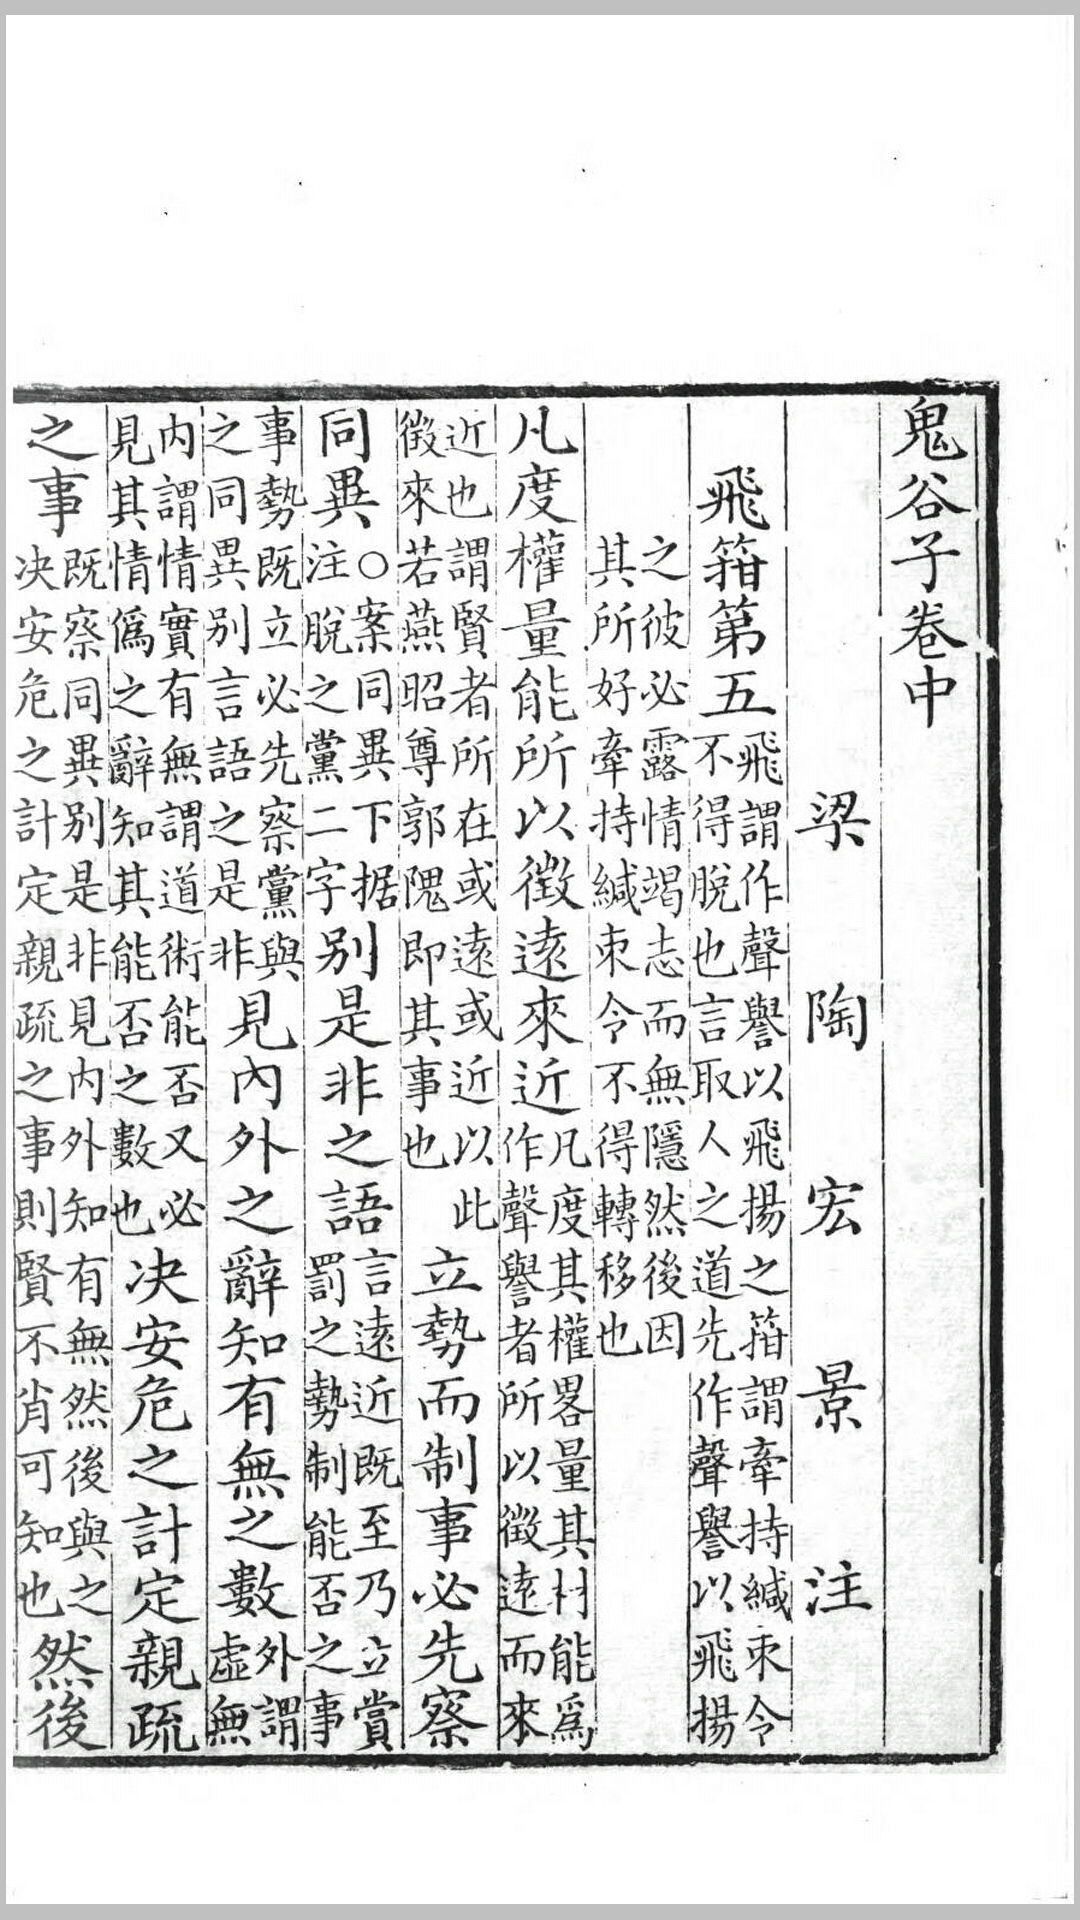 鬼谷子卷中
梁陶宏景注
飛箝第五飛謂作聲譽以飛揚之箝謂牽持緘束令不得脫也言取人之道先作聲譽以飛揚
之彼必露情竭志而無隱然後因其所好牽持緘束令不得轉移也
凡度權量能所以徵遠來近凡度其權畧量其材能爲作聲譽者所以徵遠而來
近也謂賢者所在或遠或近以此徵來若燕昭尊郭隗即其事也立勢而制事必先察
同異○案同異下据注脫之黨二字别是非之語言遠近既至乃立賞罰之勢制能否之事
事勢既立必先察黨與之同異别言語之是非見內外之辭知有無之數外謂虛無
内謂情實有無謂道術能否又必見其情僞之辭知其能否之數也决安危之計定親疏
之事既察同異别是非見内外知有無然後與之决安危之計定親疏之事則賢不肖可知也然後